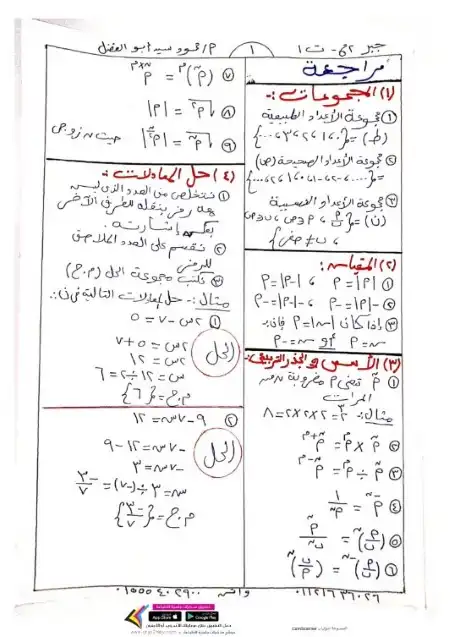 جبر ٢ع - ت ١
١
م/ محمود سيد أبو الفضل
مراجعة
(١) المجموعات :-
① مجموعة الأعداد الطبيعية
(ط) = {٠، ١، ٢، ٣، ...}
② مجموعة الأعداد الصحيحة (ص)
= {...، -٢، -١، ٠، ١، ٢، ...}
③ مجموعة الأعداد النسبية
(ن) = {أ/ب ، أ، ب ∈ ص
، ب ≠ صفر}
(٢) المقياس :
① |أ| = أ ، |-أ| = أ
② -|أ| = -أ ، -|-أ| = -أ
③ إذا كان |س| = أ فإن:
س = أ أو س = -أ
(٣) الأسس والجذر التربيعي:
① أⁿ تعنى أ مضروبة ن من
المرات
مثال: ٢³ = ٢×٢×٢ = ٨
② أⁿ × أᵐ = أⁿ⁺ᵐ
③ أⁿ ÷ أᵐ = أⁿ⁻ᵐ
④ أ⁻ⁿ = ١/أⁿ
⑤ (أ/ب)ⁿ = أⁿ/بⁿ
⑥ (أ/ب)⁻ⁿ = (ب/أ)ⁿ
⑦ (أⁿ)ᵐ = أⁿˣᵐ
⑧ √أ² = |أ|
حيث ن زوجى
(٤) حل المعادلات :-
① نتخلص من العدد الذى ليس
معه رمز بنقله للطرف الآخر
بعكس إشارته.
② نقسم على العدد الملاصق
للرمز
③ نكتب مجموعة الحل (م.ح)
مثال:- حل المعادلات التالية فى ن:
① ٢س - ٧ = ٥
الحل
٢س = ٥ + ٧
٢س = ١٢
س = ١٢ ÷ ٢ = ٦
م.ح = {٦}
② ٩ - ٧س = ١٢
الحل
-٧س = ١٢ - ٩
-٧س = ٣
س = ٣ ÷ (-٧) = -٣/٧
م.ح = {-٣/٧}
واتس